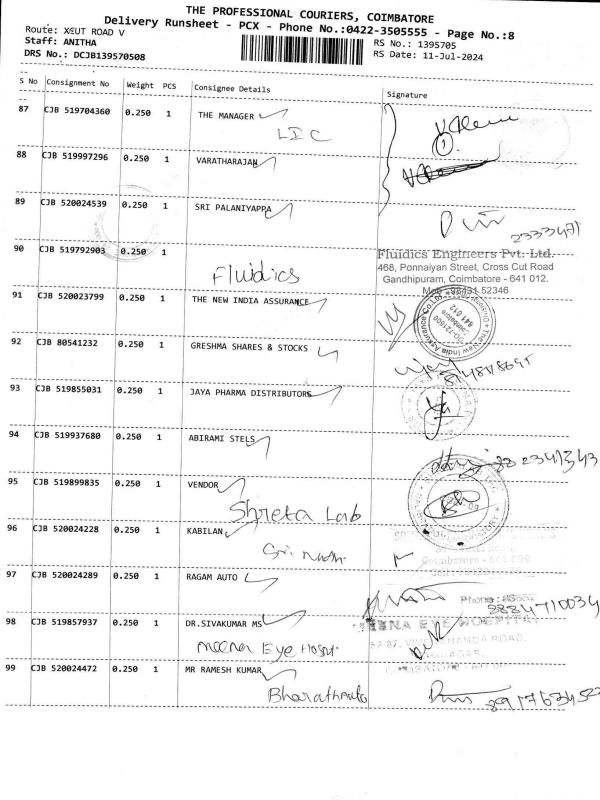 THE PROFESSIONAL COURIERS, COIMBATORE
Delivery Runsheet - PCX - Phone No.:0422-3505555 - Page No.:8
Route: XCUT ROAD V
Staff: ANITHA
DRS No.: DCJB139570508
RS No.: 1395705
RS Date: 11-Jul-2024
S No Consignment No Weight PCS Consignee Details Signature
87 CJB 519704360 0.250 1 THE MANAGER
LIC
88 CJB 519997296 0.250 1 VARATHARAJAN
89 CJB 520024539 0.250 1 SRI PALANIYAPPA
2333471
90 CJB 519792903 0.250 1
Fluidics
Fluidics Engineers Pvt. Ltd.
468, Ponnaiyan Street, Cross Cut Road
Gandhipuram, Coimbatore - 641 012.
91 CJB 520023799 0.250 1 THE NEW INDIA ASSURANCE
92 CJB 80541232 0.250 1 GRESHMA SHARES & STOCKS
93 CJB 519855031 0.250 1 JAYA PHARMA DISTRIBUTORS
94 CJB 519937680 0.250 1 ABIRAMI STELS
95 CJB 519899835 0.250 1 VENDOR
Shreta Lab
96 CJB 520024228 0.250 1 KABILAN
97 CJB 520024289 0.250 1 RAGAM AUTO
98 CJB 519857937 0.250 1 DR.SIVAKUMAR MS
meena Eye Hospt.
99 CJB 520024472 0.250 1 MR RAMESH KUMAR
Bharath Auto